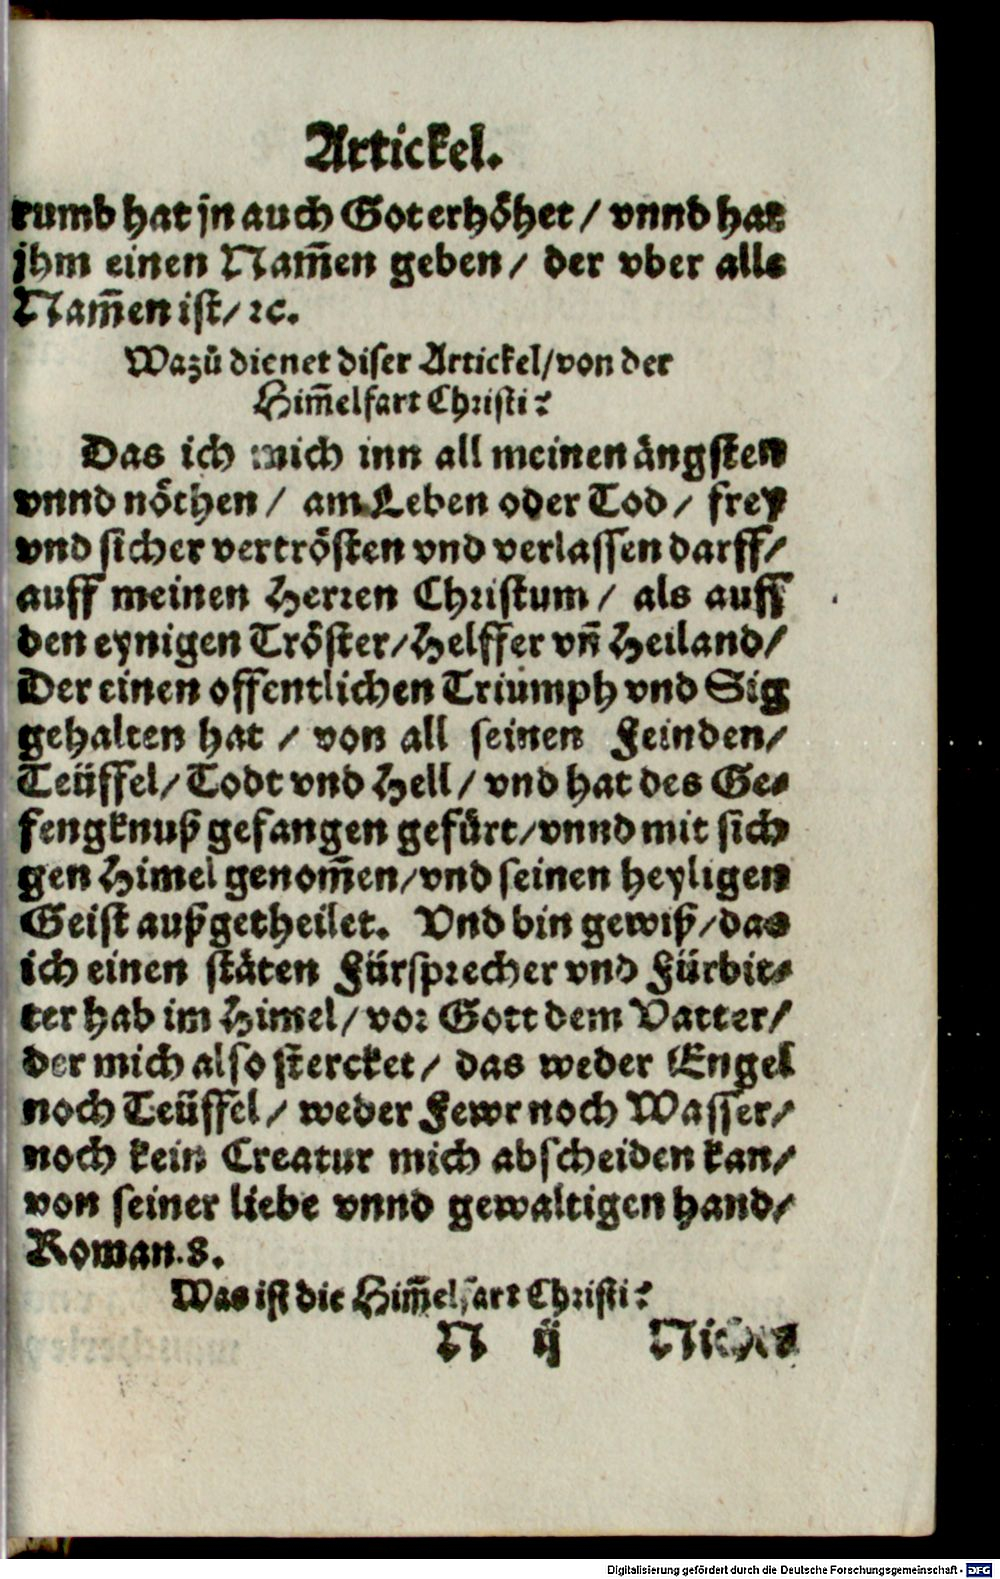 Artickel.
rumb hat jn auch Got erhöhet / vnnd hat
jhm einen Nam̃en geben / der vber alle
Nam̃en ist / ꝛc.
Wazů dienet diser Artickel / von der
Him̃elfart Christi?
Das ich mich inn all meinen ängsten
vnnd nöthen / am Leben oder Tod / frey
vnd sicher vertrösten vnd verlassen darff /
auff meinen Herren Christum / als auff
den eynigen Tröster / Helffer vñ Heiland /
Der einen offentlichen Triumph vnd Sig
gehalten hat / von all seinen Feinden /
Teüffel / Todt vnd Hell / vnd hat des Ge-
fengknuß gefangen gefürt / vnnd mit sich
gen Himel genom̃en / vnd seinen heyligen
Geist außgetheilet. Vnd bin gewiß / das
ich einen stäten Fürsprecher vnd Fürbit-
ter hab im Himel / vor Gott dem Vatter /
der mich also stercket / das weder Engel
noch Teüffel / weder Fewr noch Wasser /
noch kein Creatur mich abscheiden kan /
von seiner liebe vnnd gewaltigen hand /
Roman. 8.
Was ist die Him̃elfart Christi?
N ij Nichts
Digitalisierung gefördert durch die Deutsche Forschungsgemeinschaft - DFG